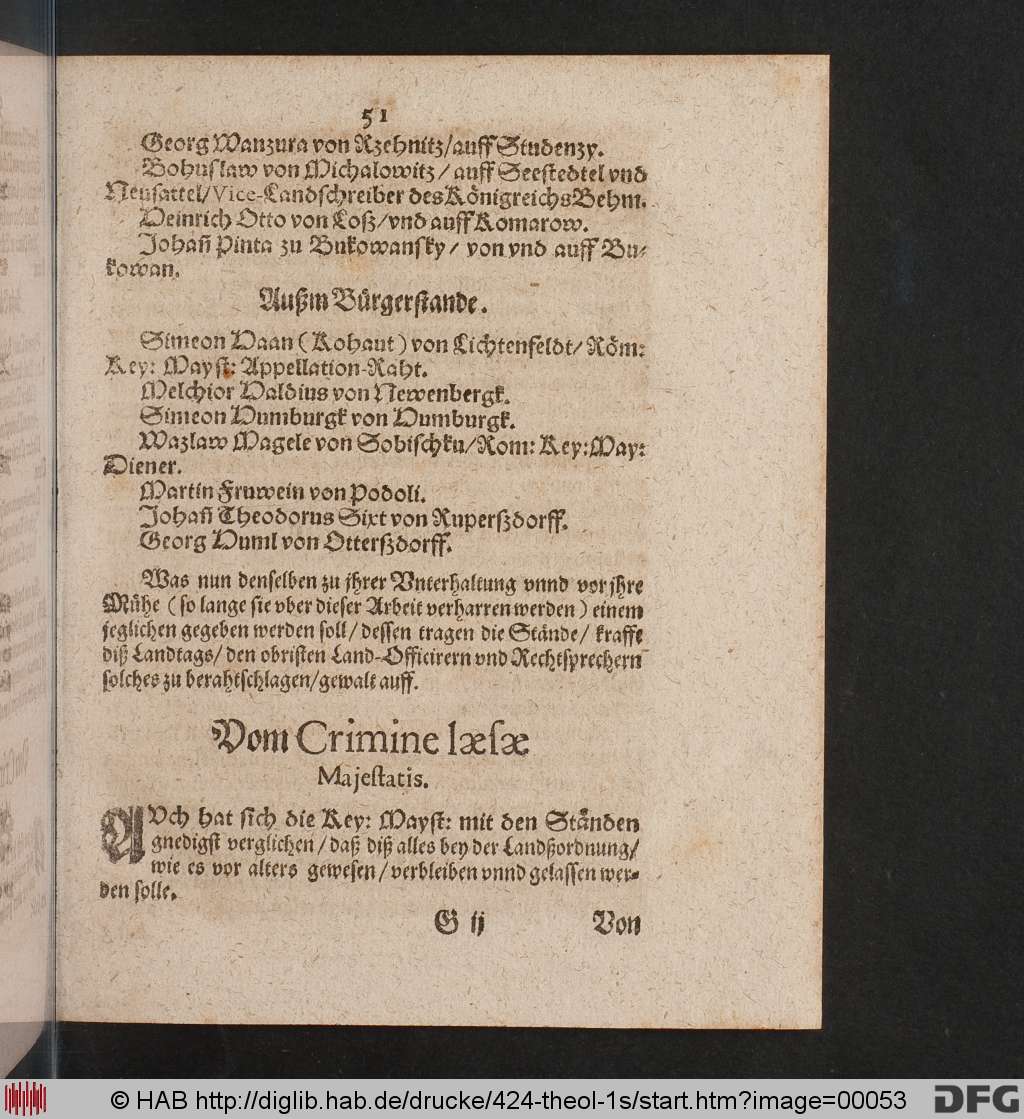 51
Georg Wanzura von Rzehnitz/auff Studenzy.
Bohuslaw von Michalowitz/ auff Seestedtel vnd
Neusattel/Vice-Landschreiber des Königreichs Behm.
Heinrich Otto von Loß/vnd auff Komarow.
Johañ Pinta zu Bukowansky/ von vnd auff Bu-
kowan.
Außm Bürgerstande.
Simeon Haan (Kohaut) von Lichtenfeldt/ Röm:
Key: Mayst: Appellation-Raht.
Melchior Haldius von Newenbergk.
Simeon Humburgk von Humburgk.
Wazlaw Magele von Sobischku/Rom: Key:May:
Diener.
Martin Fruwein von Podoli.
Johañ Theodorus Sixt von Ruperßdorff.
Georg Huml von Otterßdorff.
Was nun denselben zu jhrer Vnterhaltung vnnd vor jhre
Mühe (so lange sie vber dieser Arbeit verharren werden) einem
jeglichen gegeben werden soll/ dessen tragen die Stände/ krafft
diß Landtags/ den obristen Land-Officirern vnd Rechtsprechern
solches zu berahtschlagen/gewalt auff.
Vom Crimine læsæ
Majestatis.
AVch hat sich die Key: Mayst: mit den Ständen
gnedigst verglichen/ daß diß alles bey der Landßordnung/
wie es vor alters gewesen/ verbleiben vnnd gelassen wer-
den solle.
G ij Von
© HAB http://diglib.hab.de/drucke/424-theol-1s/start.htm?image=00053
DFG